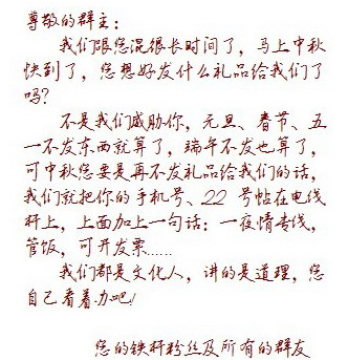 尊敬的群主：
我们跟您混很长时间了，马上中秋
快到了，您想好发什么礼品给我们了
吗？
不是我们威胁你，元旦、春节、五
一不发东西就算了，端午不发也算了，
可中秋您要是再不发礼品给我们的话，
我们就把你的手机号、22 号帖在电线
杆上，上面加上一句话：一夜情专线，
管饭，可开发票......
我们都是文化人，讲的是道理，您
自己看着办吧！
您的铁杆粉丝及所有的群友